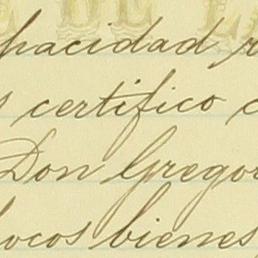 pacidad
s certifico c
Don Gregor
locos bienes,